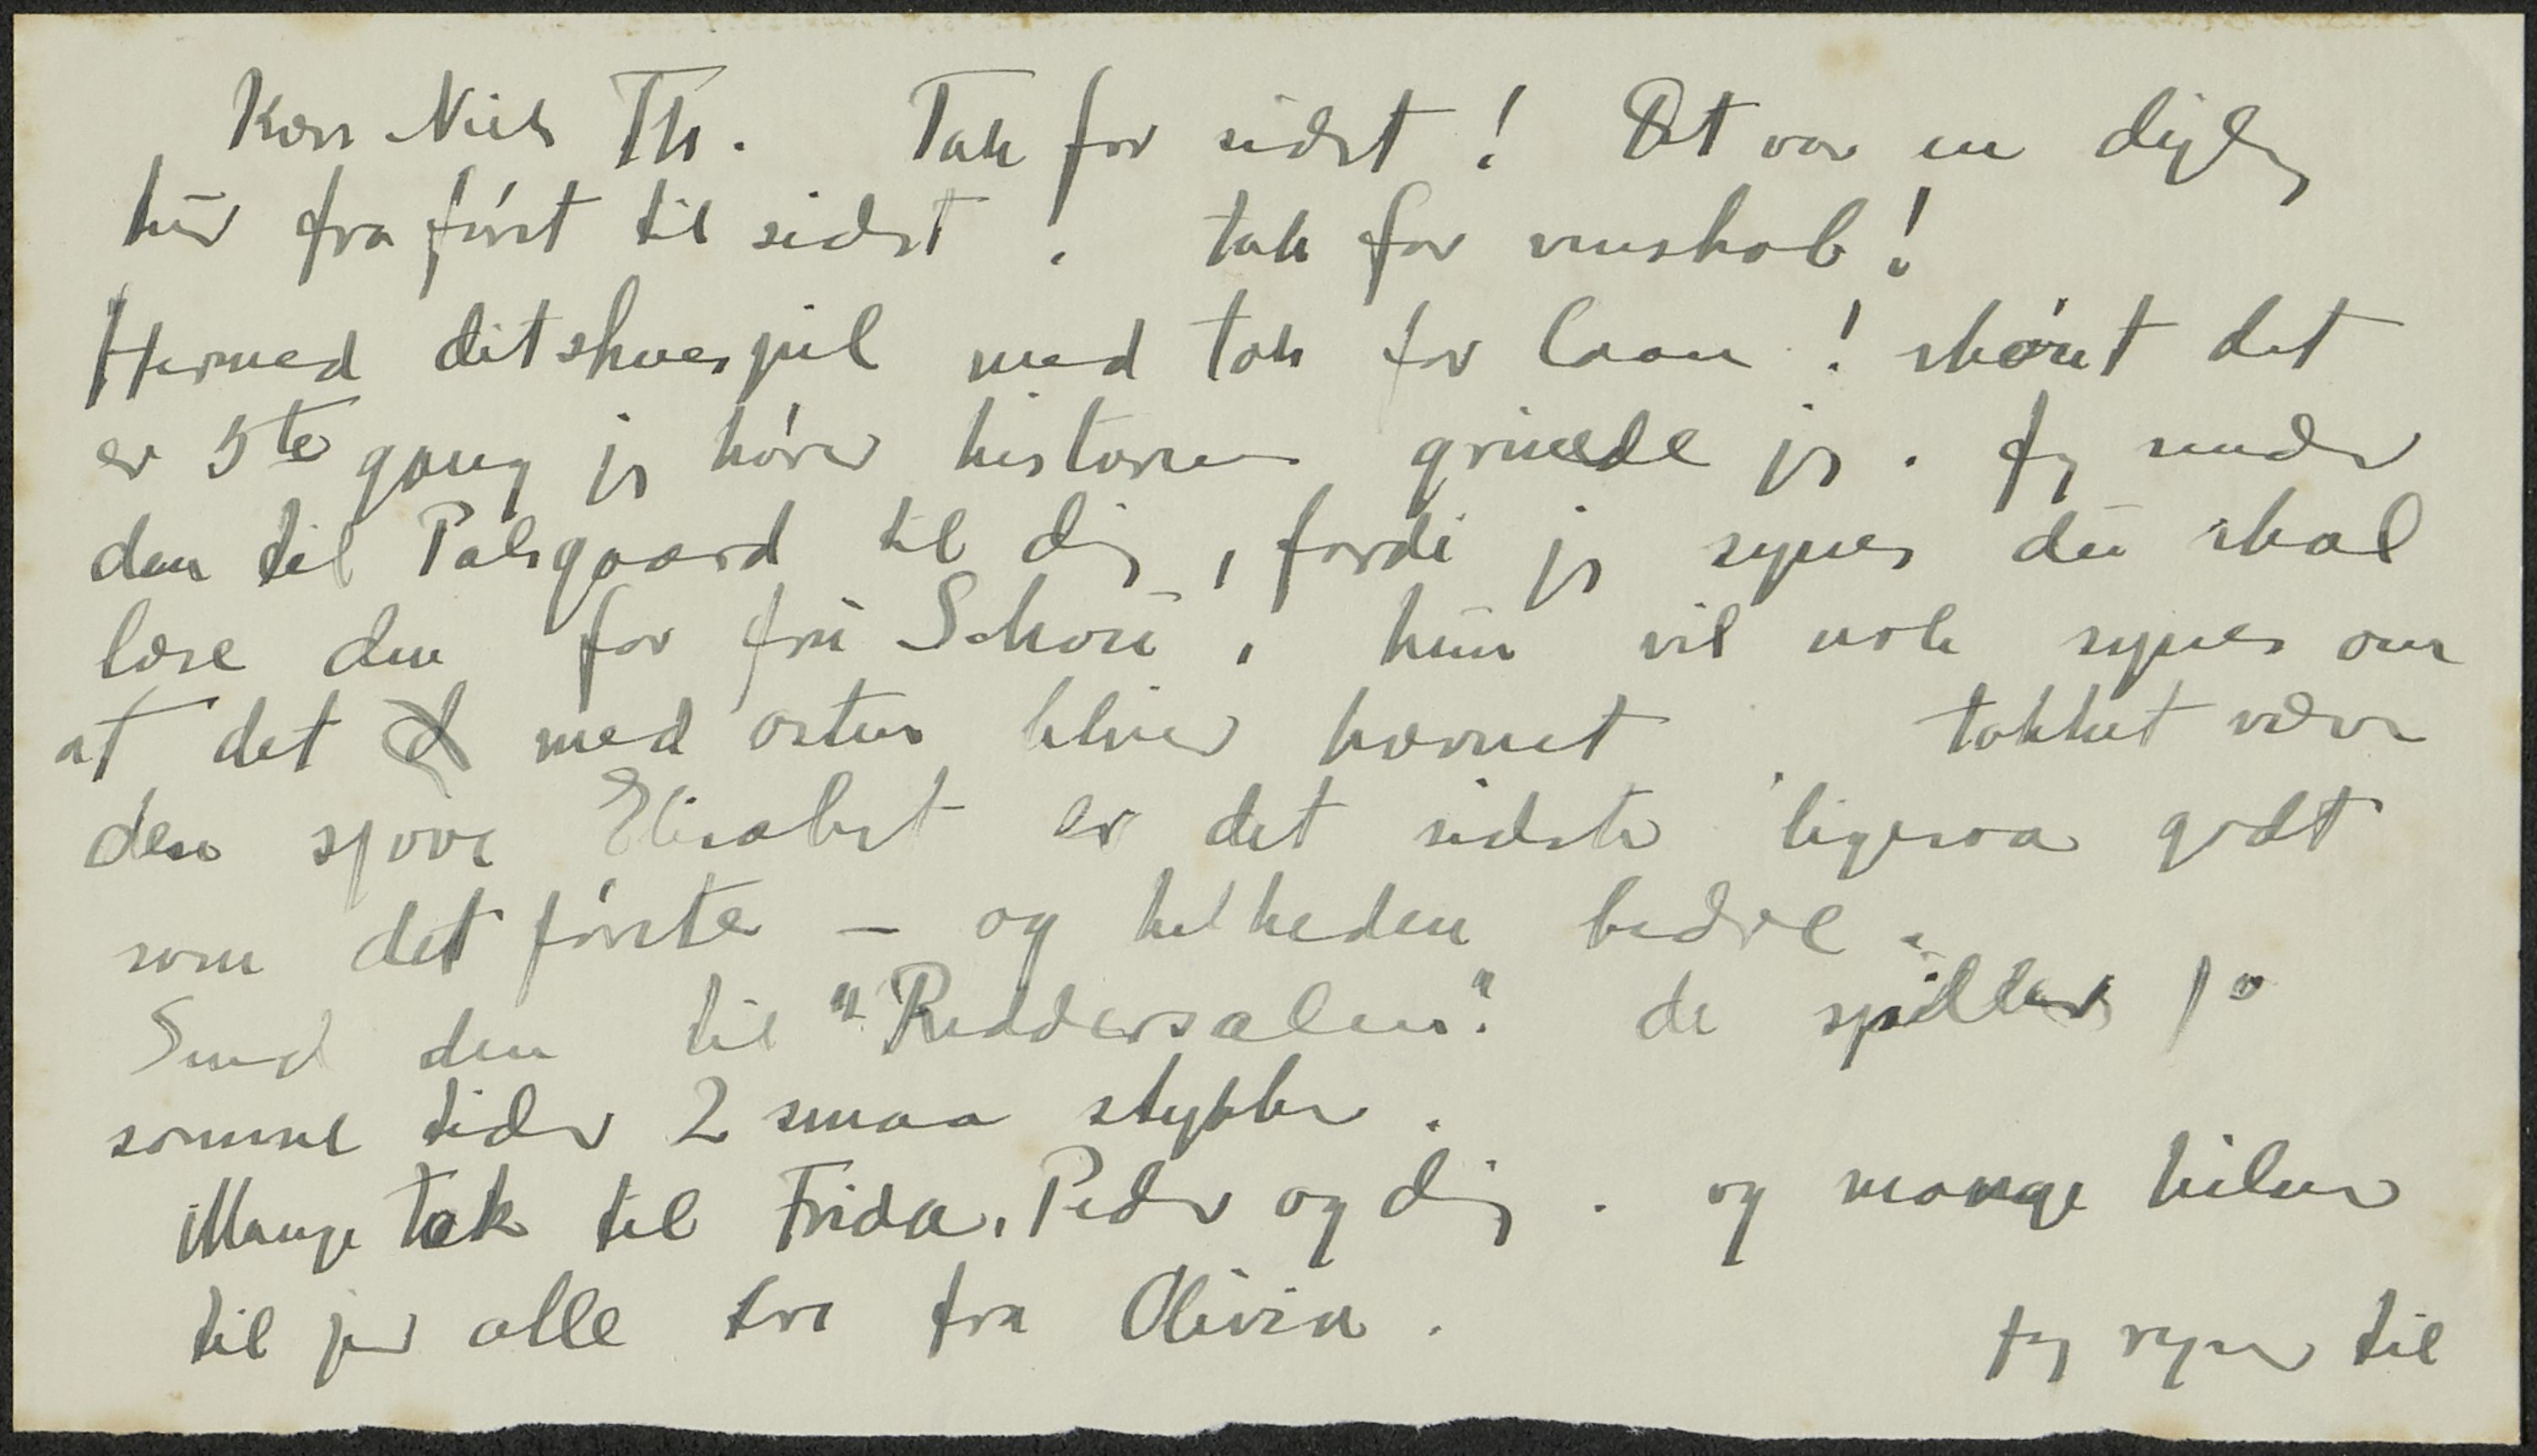 Kære Niels Th. Tak for sidst! Det var en dejlig
tur fra først til sidst. tak for venskab!
Hermed dit skuespil med tak for laan! skønt det
er 5te gang jeg hører historien grinede jeg. Jeg sender
den til Palsgaard til dig, fordi jeg synes du skal
læse den for fru Schou, hun vil nok synes om
at det med osten bliver hævnet. takket være
den sjove Elisabet er det sidste ligesaa godt
som det første - og helheden bedre.
Send den til "Riddersalen". de spiller jo
somme tider 2 smaa stykker.
Mange tak til Frida, Peder og dig. og mange hilsner
til jer alle tre fra Olivia. Jeg rejser til